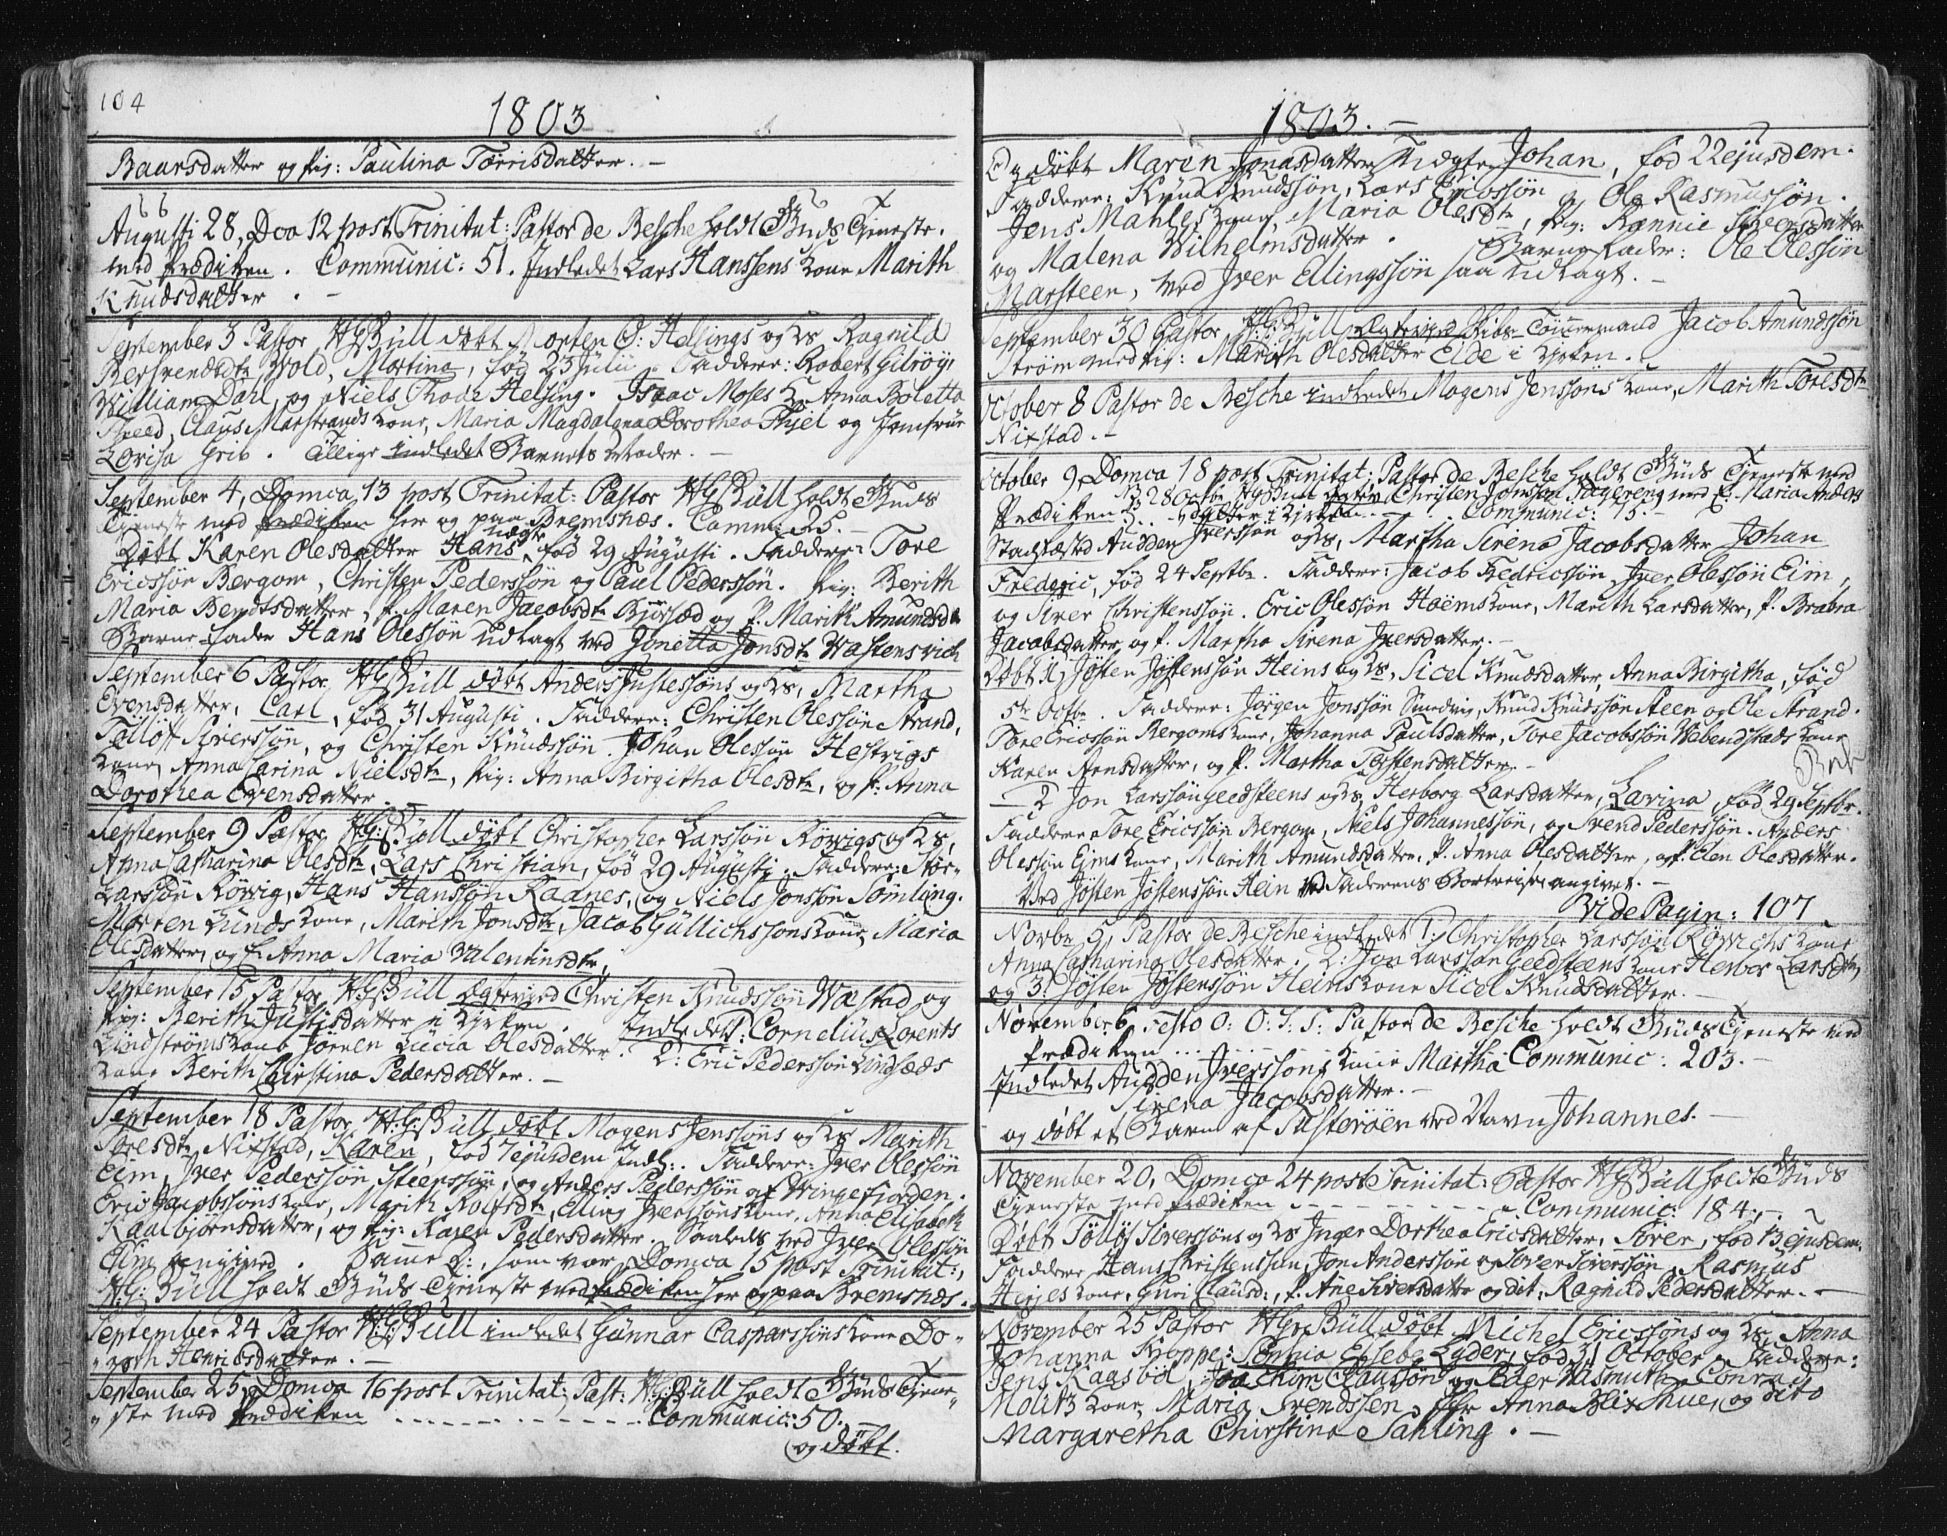 104
1803
Baarsdatter og Pig: Paulina Tørrisdatter. –
Augusti 28, Dca 12 post Trinitat: Pastor de Besche holdt Guds Tieneste.
med Prædiken. Communic: 51. Indledet Lars Hanssens Kone Marith
Knudsdatter. –
September 3 Pastor HG Büll døbt Morten O: Hellings og Hs Ragnild
Wold, Martina, fød 23 Julii. Faddere: Robert Gilroys
William Dahl, og Niels Thode Helsing. Isaac Moses K. Anna Boletta
Claus Marstrands Kone, Maria Magdalena Dorothea Thiel og Jomfrue
Lovisa Grib. Tillige indledet Barnets Moder. –
September 4, Domca 13 post Trinitat: Pastor HG Büll holdt Guds
Tieneste med Prædiken her og paa Bremsnæs. Comm: 25.
Døbt Karen Olesdatter Hans, fød 29 Augusti. Faddere: Tore
Ericssøn Bergom, Christen Pederssøn og Paul Pederssøn. Pig: Berith
Maria Bendtsdatter, P. Maren Jacobsdtr og P. Marith Amundsdtr
Barne-Fader Hans Olessøn Udlagt ved Jonetta Jonsdtr Wastensvich
September 6 Pastor HG Büll døbt Anders Justessøns og Hs, Martha
Evensdatter, Carl, fød 31 Augusti. Faddere: Christen Olessøn Strand,
Tølløf Siverssøn, og Christen Knudssøn. Johan Olessøn Hestvigs
Kone, Anna Carina Nielsdtr, Pig: Anna Birgitha Olesdtr, og P: Anna
Dorothea Evensdatter.
September 9 Pastor HG: Büll døbt Christopher Larssøn Rövigs og Hs,
Anna Catharina Olesdtr, Lars Christian, fød 29 Augusti. Faddere:
Larssøn Rövig, Hans Hanssøn Radnes, og Niels Jonssøn Sømling.
Morten Lunds Kone, Marith Jonsdtr, Jacob Güllichssøns Kone, Maria
Olesdatter, og P. Anna Maria Valentinsdtr.
September 15 Pastor HG Büll Ægteviet Christen Knudssøn Wæstad og
Pig: Berith Justisdatter i Kirken. Indledet: Cornelius Lorents
Lindstrøms Kone Jørnen Lucia Olesdatter. 2: Eric Pederssøn Lingsæds
Kone Berith Christina Pedersdatter. –
September 18 Pastor H:G: Büll døbt Mogens Jenssøns og Hs Marith
Toresdtr, Nixstad, Karen, fød 7 ejusdem Indl:. Faddere: Iver Olessøn
Eim, Iver Pederssøn Steenssøn, og Anders Pederssøn af Wingefjorden.
Eric Jacobssøns Kone, Marith Rolfsdtr, Elling Iverssøns Kone, Anna Elisabeth
Kaalbjørnsdatter, og Pig: Karen Pedersdatter. Saaledes ved Iver Olessøn
Eim angived. Samme D:, som var Domca 15 post Trinitat:,
H:G: Büll holdt Guds Tieneste med Prædiken her og paa Bremsnæs.
September 24 Pastor H:G: Büll indledet Gunnar Casparssøns Kone Do„
„roth Henricsdatter. –
September 25, Domca 16 post Trinitat: Past: H:G: Büll holdt Guds Tiene„
„ste med Prædiken . . . . . Communic: 50. –
og døbt.
1803. –
Og døbt Maren Jonasdatter Uægte Johan, fød 22 ejusdem.
Faddere: Knud Knudssøn, Lars Ericssøn, Ole Rasmussøn.
Jens Mahles Kone, Maria Olesdtr, Pig: Rannie Siversdatter
og Malena Wilhelmsdatter. Barne-Fader: Ole Olessøn
Marsteen, ved Iver Ellingssøn saa Udlagt. –
September 30 Pastor HG Büll Ægteviet Skibs-Tømmermand Jacob Amundssøn
Strøm med Pig: Marith Olesdatter Eide i Kirken.
October 8 Pastor de Besche indledet Mogens Jenssøns Kone, Marith Toresdtr
Nixstad. –
October 9, Domca 18 post Trinitat: Pastor de Besche holdt Guds Tieneste med
28 Octbr HG Büll Ægtev. Christen Jonssøn Fagereng med P. Maria Anders
Prædiken . . datter i Kirken. – Communic: 15
Stadfæsted Audden Iverssøn og Hs, Martha Sirena Jacobsdatter Johan
Frederic, fød 24 Septbr. Faddere: Jacob Fredricssøn, Iver Olessøn Eim,
og Siver Christenssøn. Eric Olessøn Hoëms Kone, Marith Larsdatter, P. Brabra
Jacobsdatter, og P. Martha Sirena Iversdatter. –
Døbt 1, Jøsten Jøstenssøn Heins og Hs, Sicel Knudsdatter, Anna Birgitha, fød
5te Octbr. Faddere: Jørgen Jonssøn Sundvig, Knud Knudssøn Steen og Ole Strand.
Tore Ericssøn Bergoms Kone, Johanna Paulsdatter, Tore Jacobssøn Webendstads Kone
Karen Arnsdatter, og P. Martha Tostensdatter. –
– 2 Jon Larssøn Geedsteens og Hs Herborg Larsdatter, Lavina, fød 29 Septbr.
Faddere: Tore Ericssøn Bergom, Niels Johannessøn, og Svend Pederssøn. Anders
Olessøn Eims Kone, Marith Amundsdatter, P. Anna Olesdatter, og P. Elen Olesdatter.
Ved Jøsten Jøstenssøn Hein ved Faderens Bortreise angivet. –
Vide Pagin: 107.
Novbr 5, Pastor de Besche indledet 1: Christopher Larssøn Rövichs Kone
Anna Catharina Olesdatter. 2: Jon Larssøn Geedsteens Kone Herbor Larsdtr,
og 3: Jøsten Jøstenssøn Heins Kone Sicel Knudsdatter. –
November 6, Festo O: O: S: S: Pastor de Besche holdt Guds Tieneste med
Prædiken . . . . . Communic: 203. –
Indledet Audden Iverssøns Kone Martha
Sirena Jacobsdatter. –
og døbt et Barn af Fusterøen ved Navn Johannes. –
November 20, Domca 24 post Trinitat: Pastor HG Büll holdt Guds
Tieneste med Prædiken – – – – – Communic: 184. –
Døbt Tølløf Siverssøns og Hs Inger Dorthea Ericsdatter, Sører, fød 13 ejusdem.
Faddere Hans Christenssøn, Jon Anderssøn og Siver Siverssøn, Rasmus
Kone, Guri Clausd:, P. Ane Siversdatter og dit. Ragnild Pedersdatter. –
November 25 Pastor HG: Büll døbt Michel Ericssøns og Hs, Anna
Johanna Kroppe: Lyder, fød 31 October. Faddere:
Jens Kaasbøl, Joachim Claussøn og Peder Wasmuth, Conrad
Molitz Kone, Maria Svendssen, Jfr Anna Blix Thue, og dito
Margaretha Christina Sahling. –